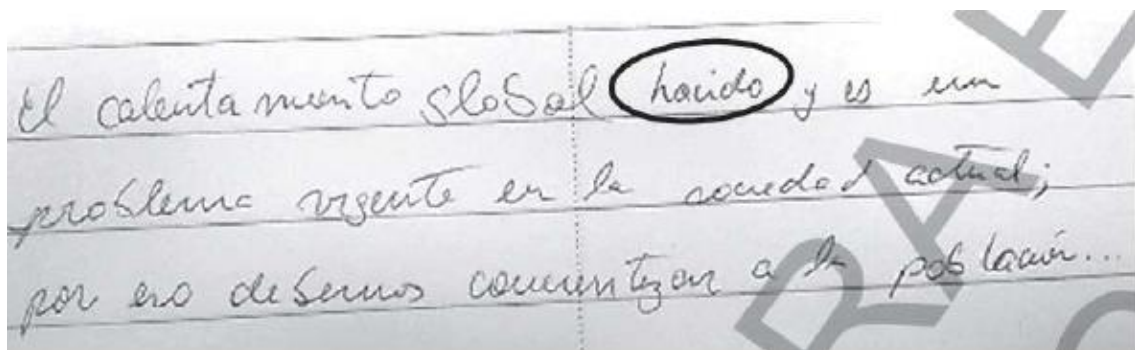 El calentamiento global hacido y es un
problema vigente en la sociedad actual;
por eso debemos concientizar a la población...